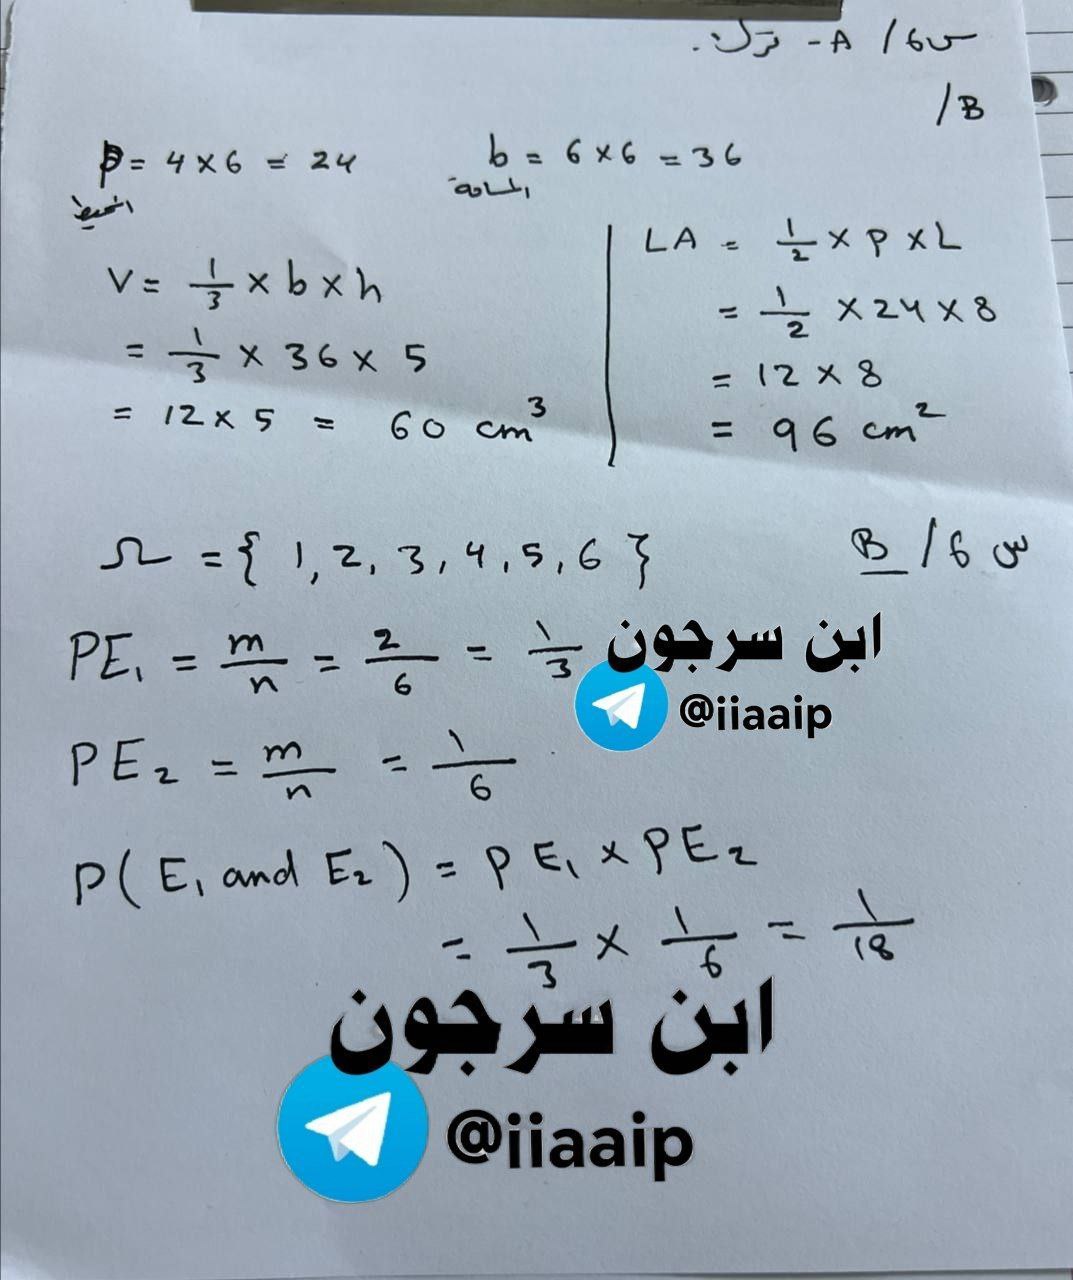 س6 / A - ترك.
B /
p = 4 × 6 = 24
المحيط
b = 6 × 6 = 36
المساحة
V = 1/3 × b × h
= 1/3 × 36 × 5
= 12 × 5 = 60 cm³
LA = 1/2 × P × L
= 1/2 × 24 × 8
= 12 × 8
= 96 cm²
س 6 / B
Ω = { 1, 2, 3, 4, 5, 6 }
PE₁ = m/n = 2/6 = 1/3
ابن سرجون
@iiaaip
PE₂ = m/n = 1/6
P( E₁ and E₂ ) = PE₁ × PE₂
= 1/3 × 1/6 = 1/18
ابن سرجون
@iiaaip